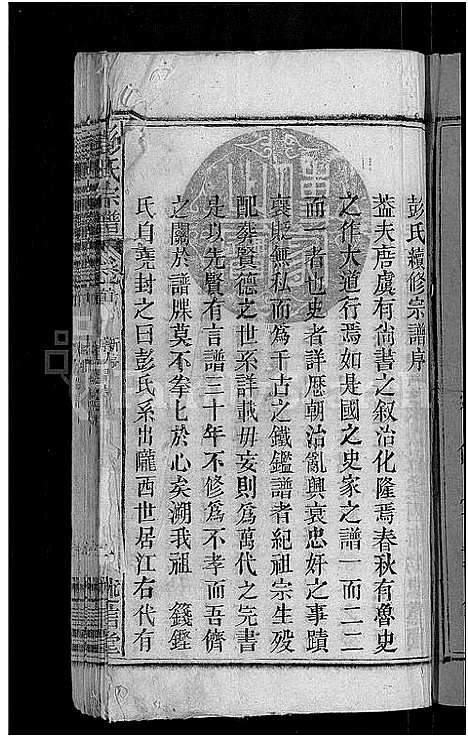 彭氏續修宗譜序
葢夫唐虞有尚書之叙治化隆焉春秋有魯史
之作大道行焉如是國之史家之譜一而二二
而一者也史者詳歷朝治亂興衰忠奸之事蹟
褒貶無私而爲千古之鐵鑑譜者紀祖宗生殁
配葬賢德之世系詳載毋妄則爲萬代之完書
是以先賢有言譜三十年不修爲不孝而吾儕
之關於譜牒莫不拳上於心矣溯我祖 籛鏗
氏自堯封之曰彭氏系出隴西世居江右代有
彭氏宗譜 卷首 新序 述信堂